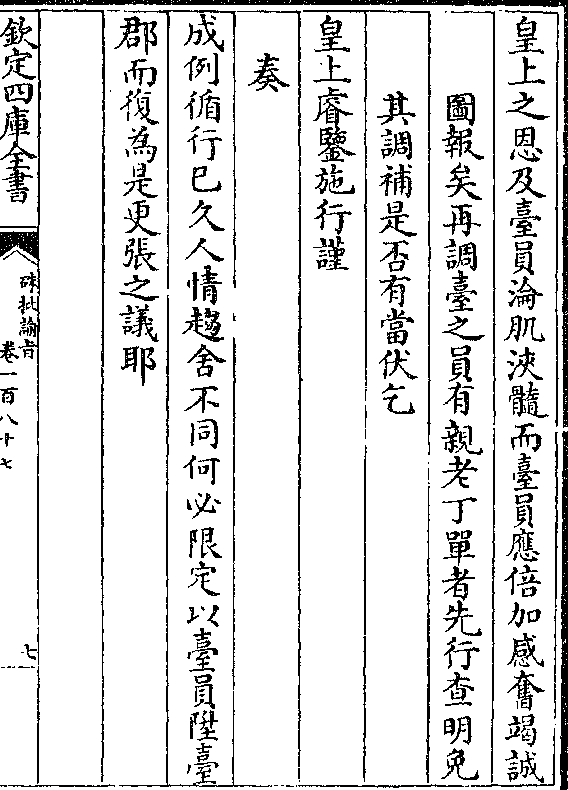 皇上之恩及臺員淪肌浹髓而臺員應倍加感奮竭誠
圖報矣再調臺之員有親老丁單者先行查明免
其調補是否有當伏乞
皇上睿鑒施行謹
奏
成例循行已久人情趨舍不同何必限定以臺員陞臺
郡而復為是更張之議耶
欽定四庫全書
硃批諭旨
卷一百八十七
七